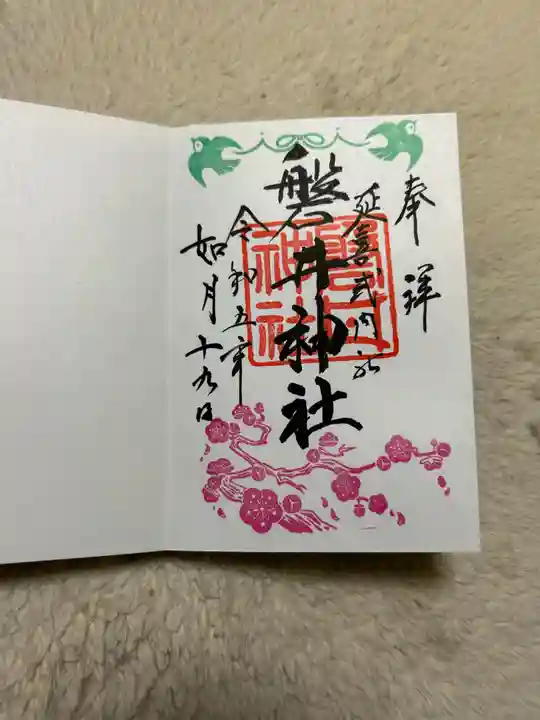 奉拝
延喜式内社
磐井神社
令和五年
如月十九日
磐井
神社